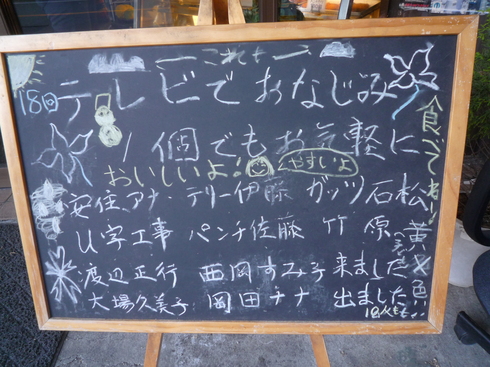 これも
18回
テレビでおなじみ
1個でもお気軽に
食べてねー!
おいしいよ!
やすいよ
安住アナ・テリー伊藤 ガッツ石松
U字工事 パンチ佐藤 竹原
渡辺正行 西岡すみ子 来ました
大場久美子 岡田ナナ 出ました
黄色